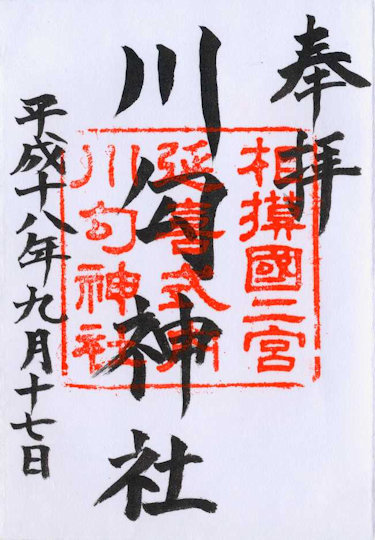 奉拝
川勾神社
平成十八年九月十七日
相模國二宮
延喜式内
川勾神社